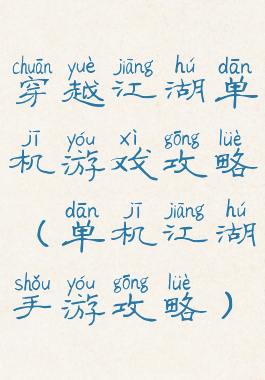 chuān yuè jiāng hú dān
穿越江湖单
jī yóu xì gōng lüè
机游戏攻略
dān jī jiāng hú
（单机江湖
shǒu yóu gōng lüè
手游攻略）